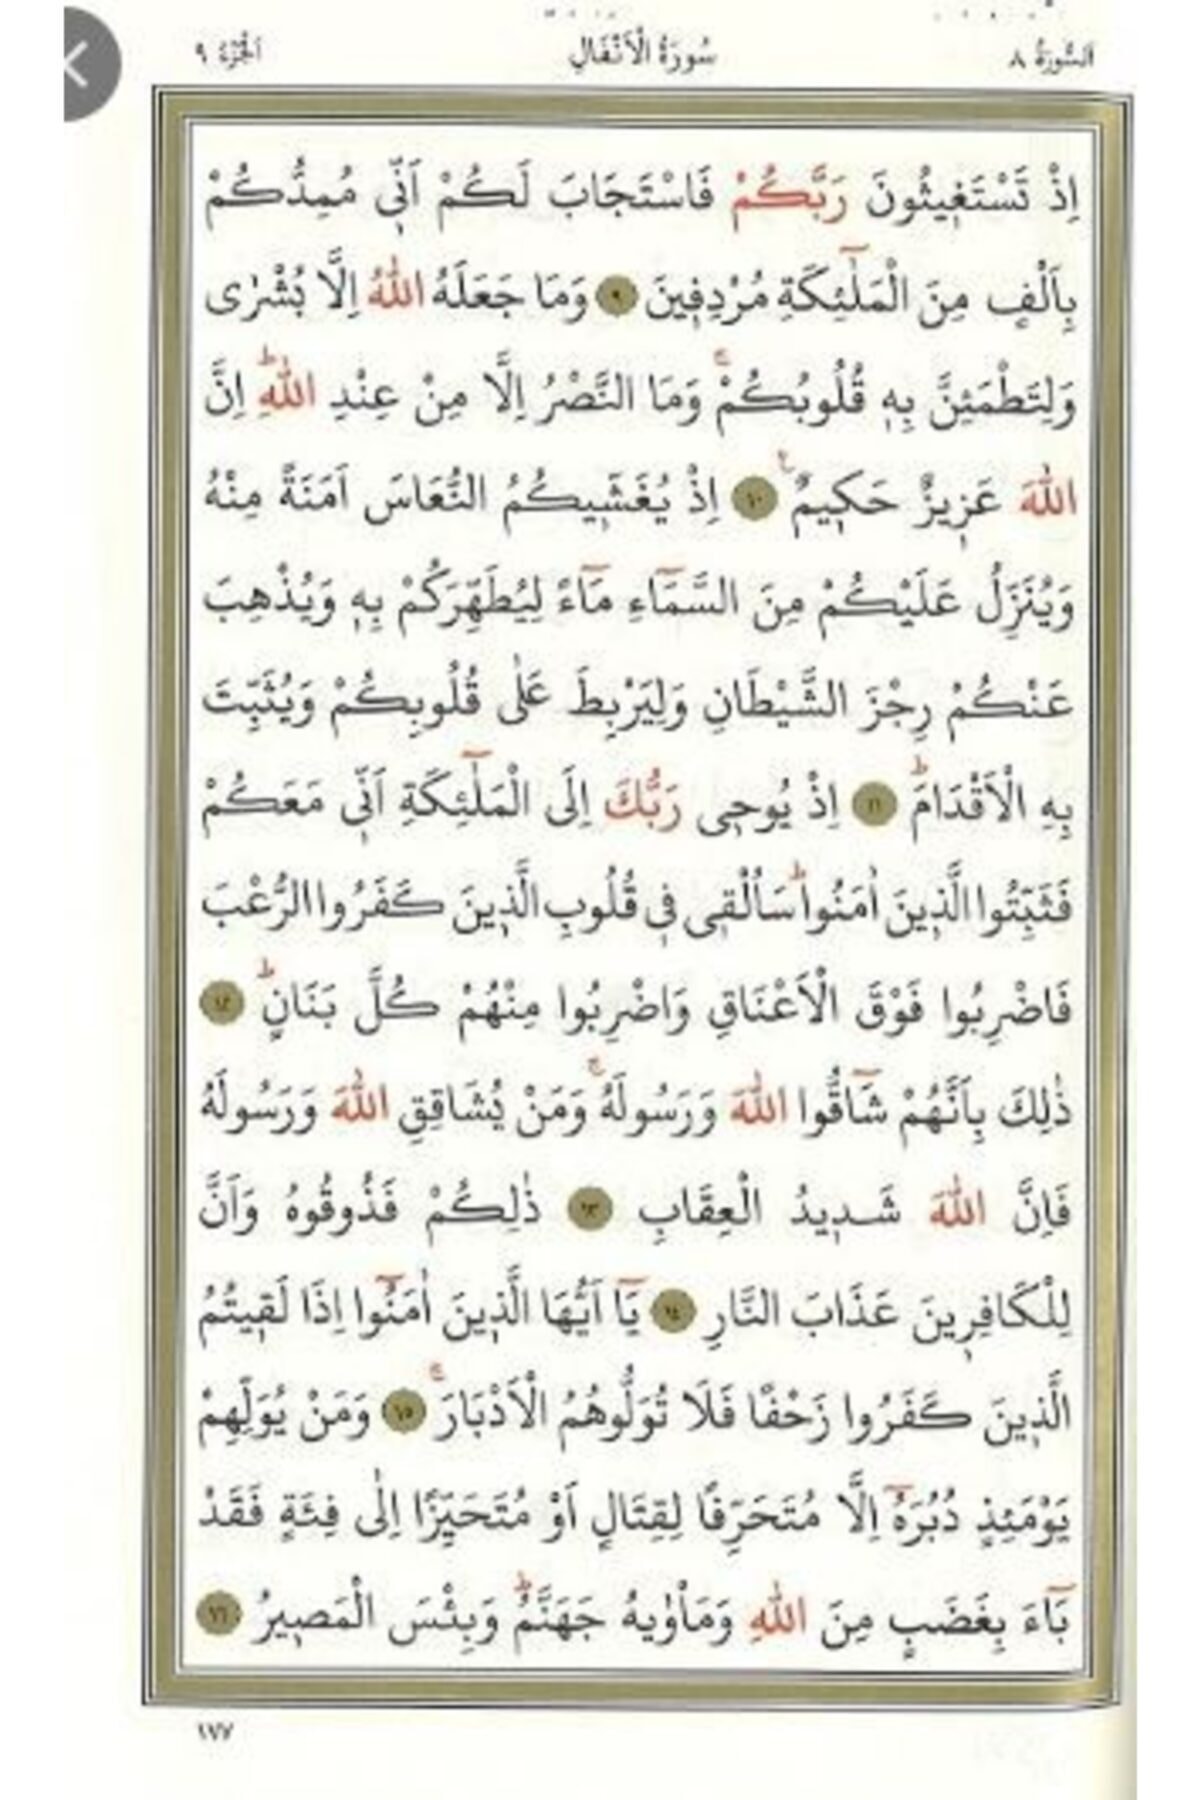 اَلسُّورَةُ ٨ سُورَةُ الْاَنْفَالِ اَلْجُزْءُ ٩
اِذْ تَسْتَغ۪يثُونَ رَبَّكُمْ فَاسْتَجَابَ لَكُمْ اَنّ۪ي مُمِدُّكُمْ
بِاَلْفٍ مِنَ الْمَلٰٓئِكَةِ مُرْدِف۪ينَ ﴿٩﴾ وَمَا جَعَلَهُ اللّٰهُ اِلَّا بُشْرٰى
وَلِتَطْمَئِنَّ بِه۪ قُلُوبُكُمْۚ وَمَا النَّصْرُ اِلَّا مِنْ عِنْدِ اللّٰهِۜ اِنَّ
اللّٰهَ عَز۪يزٌ حَك۪يمٌ۟ ﴿١٠﴾ اِذْ يُغَشّ۪يكُمُ النُّعَاسَ اَمَنَةً مِنْهُ
وَيُنَزِّلُ عَلَيْكُمْ مِنَ السَّمَٓاءِ مَٓاءً لِيُطَهِّرَكُمْ بِه۪ وَيُذْهِبَ
عَنْكُمْ رِجْزَ الشَّيْطَانِ وَلِيَرْبِطَ عَلٰى قُلُوبِكُمْ وَيُثَبِّتَ
بِهِ الْاَقْدَامَۜ ﴿١١﴾ اِذْ يُوح۪ي رَبُّكَ اِلَى الْمَلٰٓئِكَةِ اَنّ۪ي مَعَكُمْ
فَثَبِّتُوا الَّذ۪ينَ اٰمَنُواۜ سَاُلْق۪ي ف۪ي قُلُوبِ الَّذ۪ينَ كَفَرُوا الرُّعْبَ
فَاضْرِبُوا فَوْقَ الْاَعْنَاقِ وَاضْرِبُوا مِنْهُمْ كُلَّ بَنَانٍۜ ﴿١٢﴾
ذٰلِكَ بِاَنَّهُمْ شَٓاقُّوا اللّٰهَ وَرَسُولَهُۚ وَمَنْ يُشَاقِقِ اللّٰهَ وَرَسُولَهُ
فَاِنَّ اللّٰهَ شَد۪يدُ الْعِقَابِ ﴿١٣﴾ ذٰلِكُمْ فَذُوقُوهُ وَاَنَّ
لِلْكَافِر۪ينَ عَذَابَ النَّارِ ﴿١٤﴾ يَٓا اَيُّهَا الَّذ۪ينَ اٰمَنُٓوا اِذَا لَق۪يتُمُ
الَّذ۪ينَ كَفَرُوا زَحْفًا فَلَا تُوَلُّوهُمُ الْاَدْبَارَۚ ﴿١٥﴾ وَمَنْ يُوَلِّهِمْ
يَوْمَئِذٍ دُبُرَهُٓ اِلَّا مُتَحَرِّفًا لِقِتَالٍ اَوْ مُتَحَيِّزًا اِلٰى فِئَةٍ فَقَدْ
بَٓاءَ بِغَضَبٍ مِنَ اللّٰهِ وَمَأْوٰيهُ جَهَنَّمُۜ وَبِئْسَ الْمَص۪يرُ ﴿١٦﴾
١٧٧